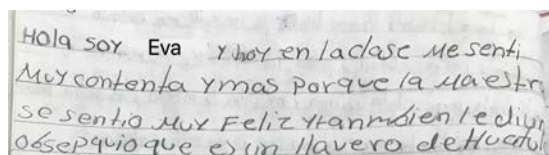 Hola soy Eva y hoy en la clase me senti
Muy contenta y mas porque la maestr
se sentio muy Feliz y tanmbien le di un
obsepquio que es un llavero de